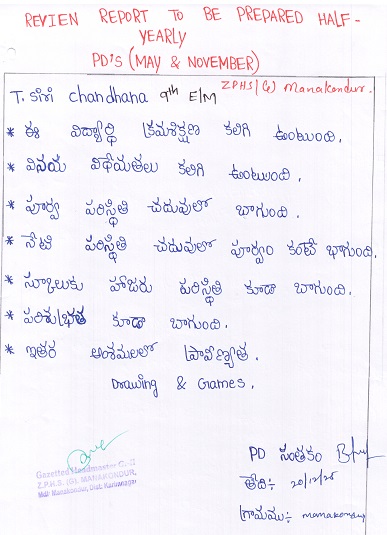 REVIEN REPORT TO BE PREPARED HALF-
YEARLY
PD'S (MAY & NOVEMBER)
Z.P.H.S/(G) Manakondur.
T. Siri chandhana 9th E/M
* ఈ విద్యార్థి క్రమశిక్షణ కలిగి ఉంటుంది.
* వినయ విధేయతలు కలిగి ఉంటుంది.
* పూర్వ పరిస్థితి చదువులో బాగుంది.
* నేటి పరిస్థితి చదువులో పూర్వం కంటే బాగుంది.
* స్కూలుకు హాజరు పరిస్థితి కూడా బాగుంది.
* పరిశుభ్రత కూడా బాగుంది.
* ఇతర అంశములలో ప్రావీణ్యత.
Drawing & Games.
Gazetted Headmaster
Z.P.H.S. (G), MANAKONDUR,
Mdl: Manakondur, Dist: Karimnagar
PD సంతకం
తేది:-
గ్రామము:- manakondur